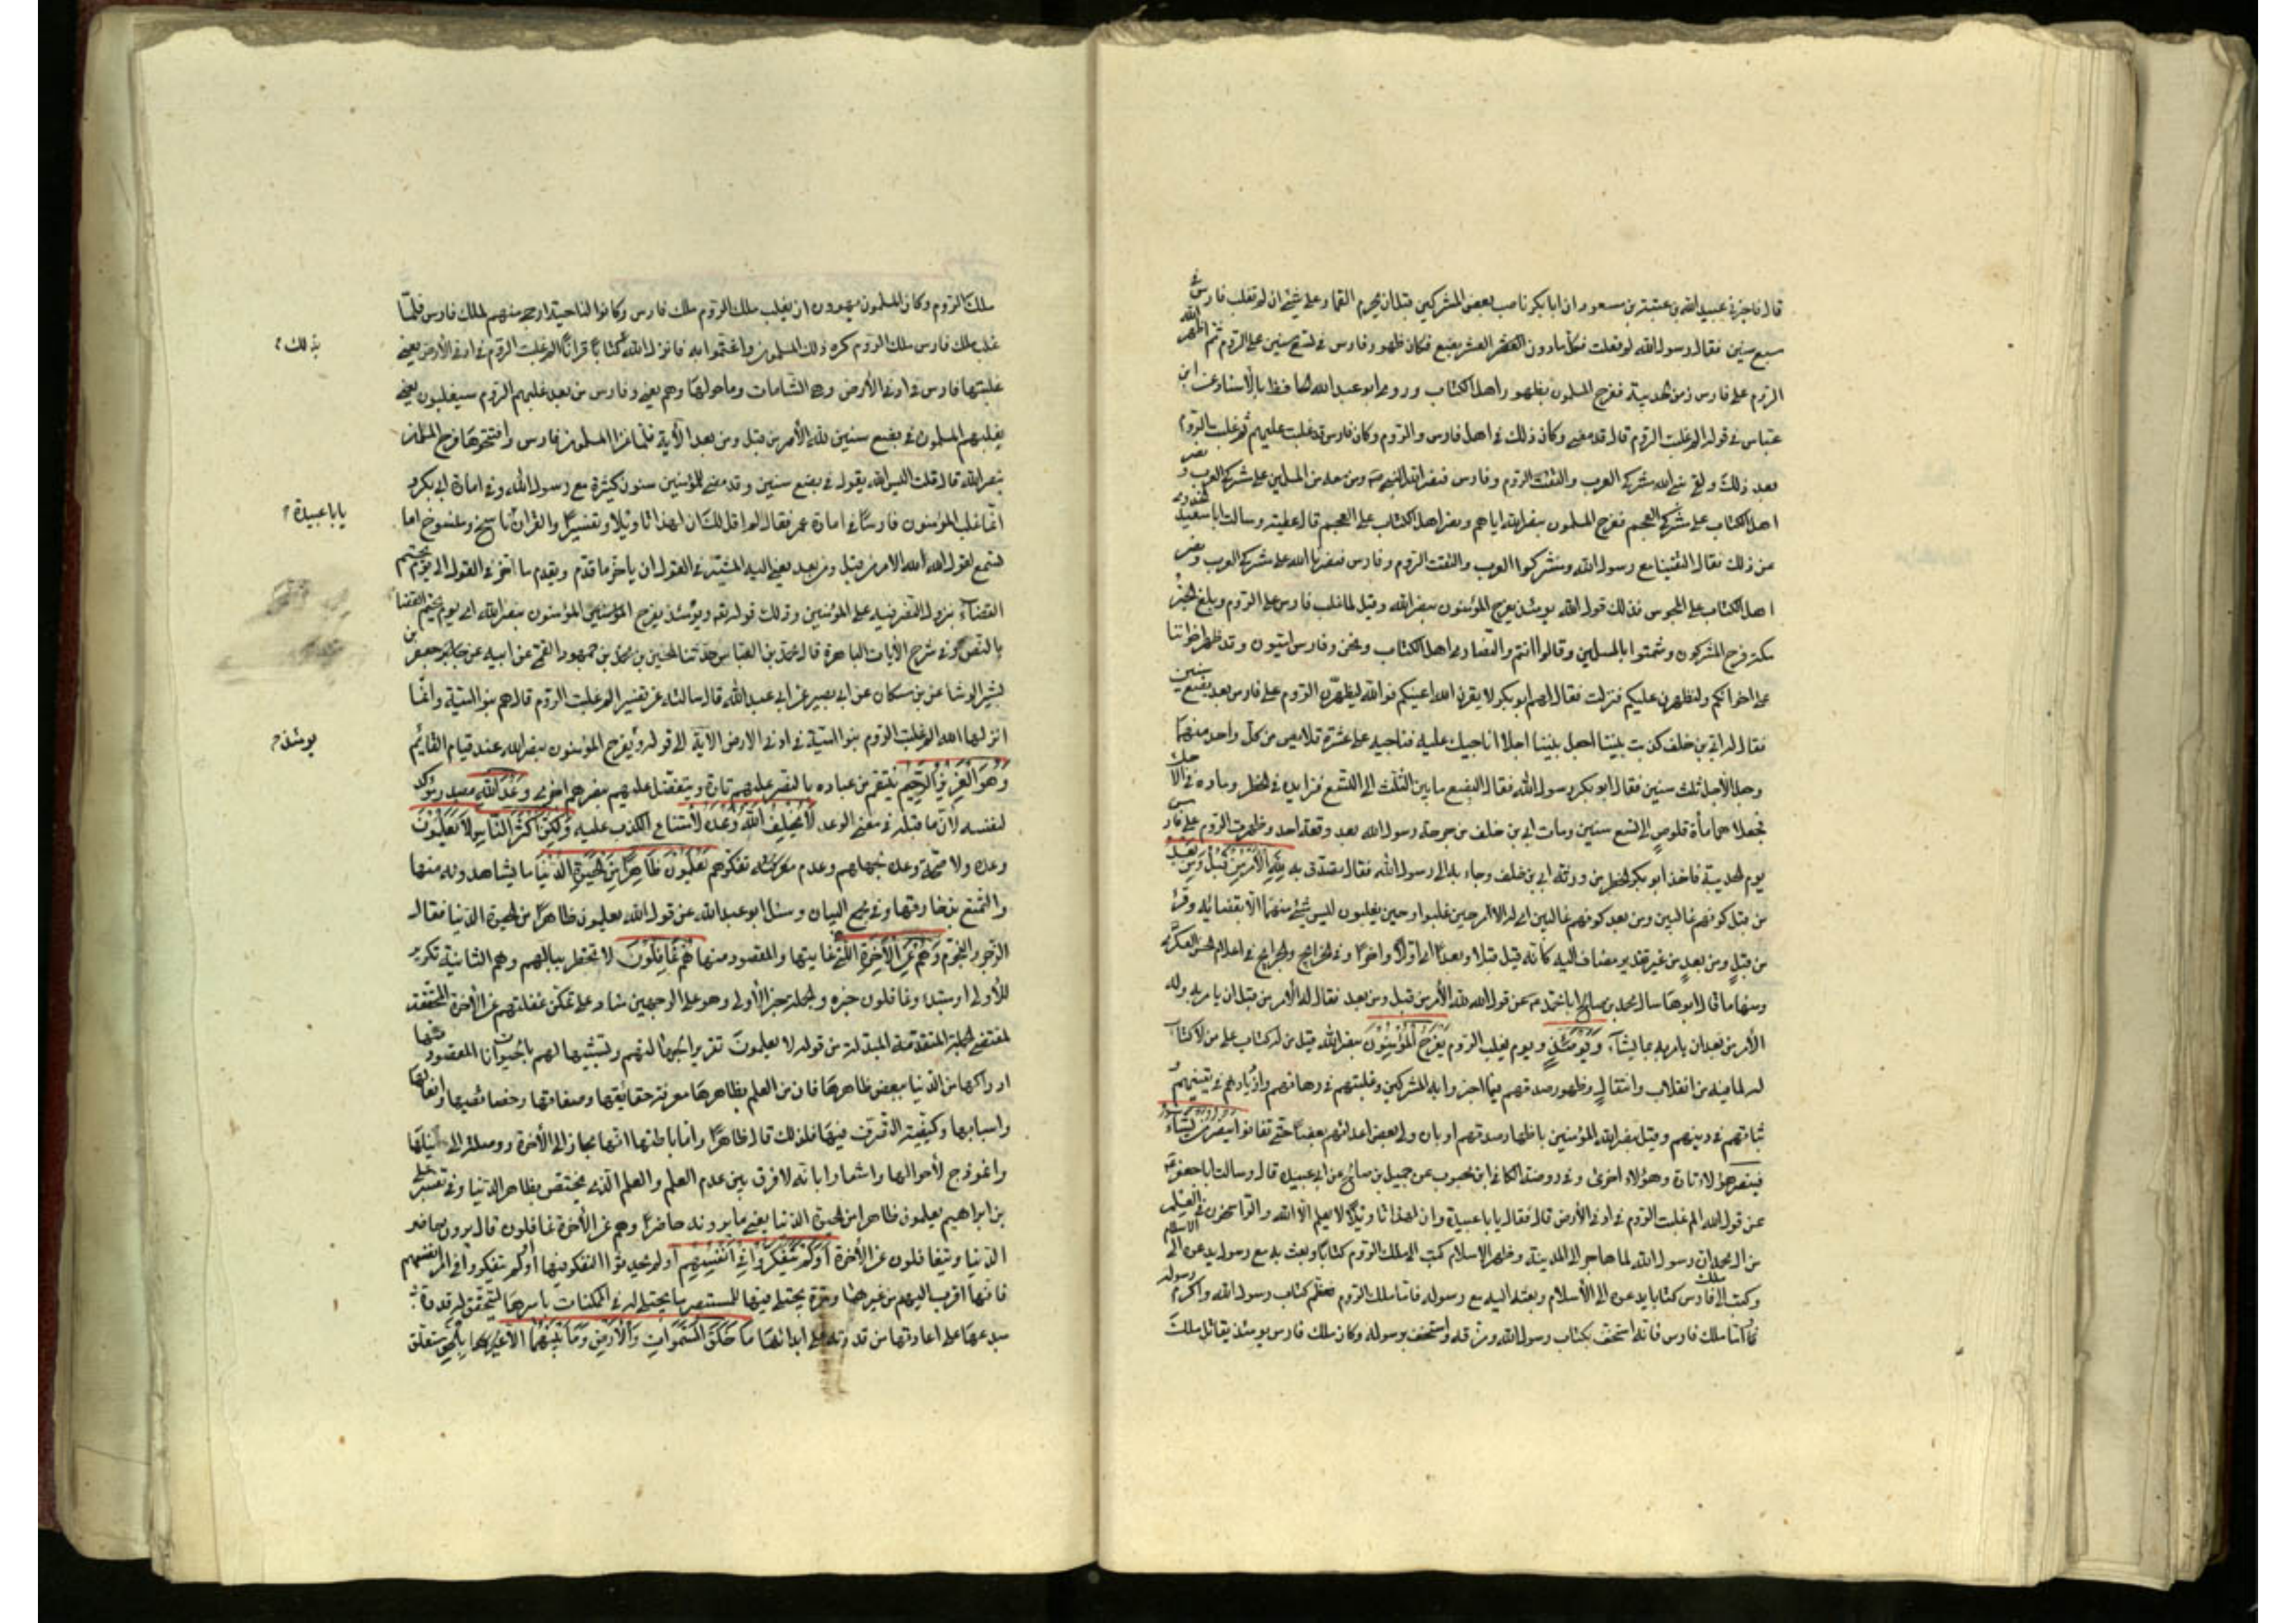 قال فاخبرني عبيد الله بن عتبة بن مسعود ان ابا بكر ناصب بعض المشركين قبل ان يحرم القمار على شئ ان لم تغلب فارس في
سبع سنين فقال رسول الله لم فعلت فكل ما دون العشر بضع فكان ظهور فارس في تسع سنين على الروم ثم اظهر الله
الروم على فارس زمن الحديبية ففرح المسلمون بظهور اهل الكتاب وروى ابو عبد الله الحافظ بالاسناد عن ابن
عباس في قوله الم غلبت الروم قال قد مضى وكان ذلك في اهل فارس والروم وكان فارس قد غلبت عليهم ثم غلبت الروم
بعد ذلك ولقى نبي الله مشركي العرب والتقت الروم وفارس فنصر الله النبي ومن معه من المسلمين على مشركي العرب ونصر
اهل الكتاب على مشركي العجم ففرح المسلمون بنصر الله اياهم ونصر اهل الكتاب على العجم قال عطية وسالت ابا سعيد الخدري
عن ذلك فقال التقينا مع رسول الله ومشركوا العرب والتقت الروم وفارس فنصرنا الله على مشركي العرب ونصر
اهل الكتاب على المجوس فذلك قول الله يومئذ يفرح المؤمنون بنصر الله وقيل لما غلب فارس على الروم وبلغ الخبر
مكة فرح المشركون وشمتوا بالمسلمين وقالوا انتم والنصارى اهل الكتاب ونحن وفارس اميون وقد ظهر اخواننا
على اخوانكم ولنظهرن عليكم فنزلت فقال لهم ابو بكر لا يقرن الله اعينكم فو الله ليظهرن الروم على فارس بعد بضع سنين
فقال له ابي بن خلف كذبت اجعل بيننا اجلا اناحبك عليه فناحبه على عشرة قلايص من كل واحد منهما
وجعلا الاجل ثلث سنين فقال ابو بكر رسول الله فقال البضع ما بين الثلث الى التسع فزايده في الخطر وماده في الاجل
فجعلاهما مأة قلوص الى تسع سنين ومات ابي بن خلف من جرحة رسول الله بعد وقعة احد وظهرت الروم على فارس
يوم الحديبية فاخذ ابو بكر الخطر من ورثة ابي بن خلف وجاء به الى رسول الله فقال تصدق به لِلّهِ الْأَمْرُ مِنْ قَبْلُ وَمِنْ بَعْدُ
من قبل كونهم غالبين ومن بعد كونهم غالبين اي له الامر حين غلبوا وحين يغلبون ليس شئ منهما الا بقضائه وقرئ
من قبلٍ ومن بعدٍ من غير تقدير مضاف اليه كانه قيل قبلا وبعدًا اي اولًا واخرًا وفي الخرايج والجرايح في اعلام الحسن العسكري
ومنها ما قال ابو هاشم سال محمد بن صالح ابا محمد عن قول الله لله الأمر من قبل ومن بعد فقال له الأمر من قبل ان يامر به وله
الأمر من بعد ان يامر به بما يشاء وَيَوْمَئِذٍ ويوم تغلب الروم يَفْرَحُ الْمُؤْمِنُونَ بنصر الله من له كتاب على من لا كتاب
له لما فيه من انقلاب وظهور صدقهم فيما اخبروا به المشركين وغلبتهم في رهانهم وازدياد يقينهم و
ثباتهم في دينهم وقيل بنصر الله المؤمنين باظهار صدقهم او بان ولى بعض اعدائهم بعضًا حتى تفانوا يَنْصُرُ مَنْ يَشَاءُ
فينصر هؤلاء تارة وهؤلاء اخرى وفي روضة الكافي ابن محبوب عن جميل بن صالح عن ابي عبيدة قال وسالت ابا جعفر
عن قول الله الم غلبت الروم في ادنى الأرض قال فقال يا با عبيدة وان لهذا تاويلًا لا يعلم الا الله والراسخون في العلم
من ال محمد ان رسول الله لما هاجر الى المدينة وظهر الاسلام كتب الى ملك الروم كتابًا وبعث به مع رسول يدعوه الى الاسلام
وكتب الى ملك فارس كتابا يدعوه الى الأسلام وبعثه اليه مع رسوله فاما ملك الروم فعظم كتاب رسول الله واكرم رسوله
واما ملك فارس فانه استخف بكتاب رسول الله ومزقه واستخف برسوله وكان ملك فارس يومئذ يقاتل ملك
ملك الروم وكان المسلمون يهوون ان يغلب ملك الروم ملك فارس وكانوا لناحيته ارجى منهم لملك فارس فلما
غلب ملك فارس ملك الروم كره ذلك المسلمون واغتموا به فانزل الله كتابًا قرانًا الم غلبت الروم في ادنى الأرض يعني
غلبتها فارس في ادنى الأرض وهي الشامات وما حولها وهم يعني وفارس من بعد غلبهم الروم سيغلبون يعني
يغلبهم المسلمون في بضع سنين لله الأمر من قبل ومن بعد الآية فلما غزا المسلمون فارس وافتتحوها فرح المسلمون
بنصر الله قال قلت اليس الله يقول في بضع سنين وقد مضى للمؤمنين سنون كثيرة مع رسول الله وفي امارة ابي بكر و
انما غلب المؤمنون فارس في امارة عمر فقال الم اقل لك ان لهذا تاويلًا وتفسيرًا والقران ناسخ ومنسوخ اما
تسمع لقول الله لله الامر من قبل ومن بعد يعني اليه المشية في القول ان ياخر ما قدم ويقدم ما اخر في القول الى يوم يحتم
القضاء بنزول النصر فيه على المؤمنين وذلك قوله ويومئذ يفرح المؤمنون بنصر الله اي يوم يحتم القضاء
بالنصر وفي شرح الأيات الباهرة قال محمد بن العباس حدثنا الحسين بن محمد بن جمهور القمي عن ابيه عن جعفر بن
بشير الوشا عن بن مسكان عن ابي بصير عن ابي عبد الله قال سالته عن تفسير الم غلبت الروم قال هم بنو امية وانما
انزلها الله الم غلبت الروم بنو امية في ادنى الارض الآية الى قوله ويفرح المؤمنون بنصر الله عند قيام القائم
وَهُوَ الْعَزِيزُ الرَّحِيمُ ينتقم من عباده بالنصر عليهم تارة ويتفضل عليهم بنصرهم اخرى وَعْدَ اللهِ مصدر مؤكد
لنفسه لان ما قبله في معنى الوعد لَا يُخْلِفُ اللهُ وَعْدَهُ لامتناع الكذب عليه وَلَكِنَّ أَكْثَرَ النَّاسِ لَا يَعْلَمُونَ
وعده ولا صحة وعده لجهلهم وعدم تفكرهم يَعْلَمُونَ ظَاهِرًا مِنَ الْحَيوةِ الدُّنْيَا ما يشاهدونه منها
والتمتع بزخارفها وفي مجمع البيان وسئل ابو عبد الله عن قول الله يعلمون ظاهرًا من الحيوة الدنيا فقال
الزجر والنجوم وَهُمْ عَنِ الْآخِرَةِ التي غايتها والمقصود منها هُمْ غَافِلُونَ لا تخطر ببالهم وهم الثانية تكرير
للأولى او مبتدا وغافلون خبره والجملة خبر الأولى وهو على الوجهين مناد على تمكن غفلتهم عن الأخرة المحققة
لمقتضى الجملة المتقدمة المبدلة من قوله لا يعلمون تقريرا لجهالتهم وتشبيها لهم بالحيوانات المقصور
ادراكها من الدنيا ببعض ظاهرها فان من العلم بظاهرها معرفة حقايقها وصفاتها وخصايصها وافعالها
واسبابها وكيفية التصرف فيها فلذلك قال ظاهرًا واما باطنها انها مجاز الى الأخرة ووصلة الى نيلها
وانموذج لأحوالها واشعارا بانه لا فرق بين عدم العلم والعلم الذي يختص بظاهر الدنيا وفي تفسير علي
بن ابراهيم يعلمون ظاهرا من الحيوة الدنيا يعني ما يرونه حاضرًا وهم عن الأخرة غافلون قال يرون حاضر
الدنيا ويتغافلون عن الأخرة أَوَلَمْ يَتَفَكَّرُوا فِي أَنْفُسِهِمْ او لم يحدثوا التفكر فيها او لم يتفكروا في امر انفسهم
فانها اقرب اليهم من غيرها ومرآة يجتلي فيها للمستبصر ما يجتلى له في الممكنات باسرها لتحقق لهم قدرة
مبدعها على اعادتها من قدرته على ابدائها مَا خَلَقَ اللهُ السَّمَوَاتِ وَالْأَرْضَ وَمَا بَيْنَهُمَا إِلَّا بِالْحَقِّ متعلق
بذلك
يا با عبيدة
يومئذ